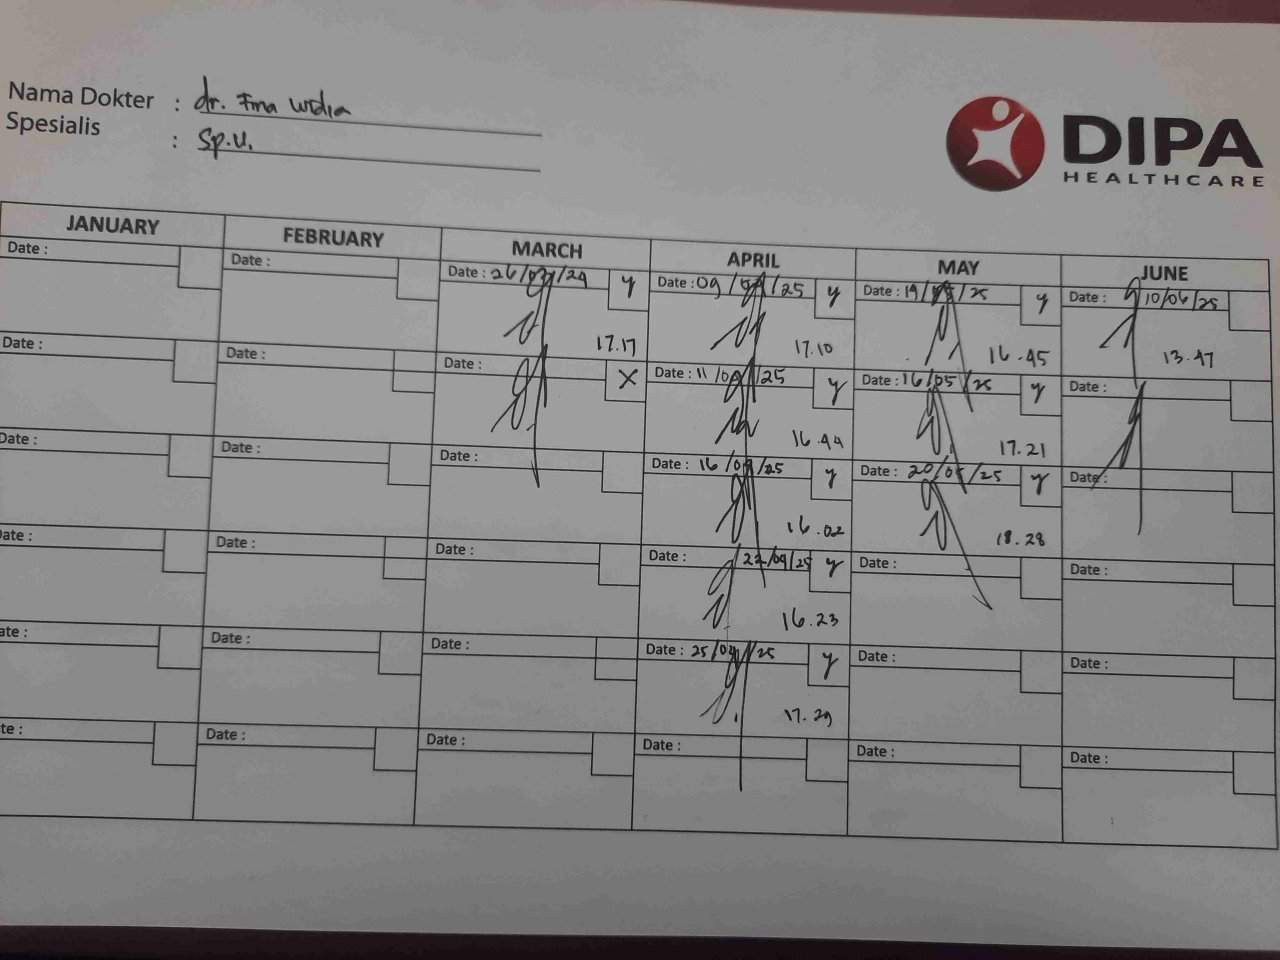 Nama Dokter : dr. Fina Widia
Spesialis : Sp.U.
DIPA
HEALTHCARE
JANUARY FEBRUARY MARCH APRIL MAY JUNE
Date : Date : Date : 26/03/24 y Date : 09/04/25 y Date : 19/05/25 y Date : 10/06/25
17.17 17.10 16.45 13.47
Date : Date : Date : X Date : 11/04/25 y Date : 16/05/25 y Date :
16.44 17.21
Date : Date : Date : Date : 16/04/25 y Date : 20/05/25 y Date :
16.02 18.28
Date : Date : Date : Date : 22/04/25 y Date : Date :
16.23
Date : Date : Date : Date : 25/04/25 y Date : Date :
17.29
Date : Date : Date : Date : Date : Date :